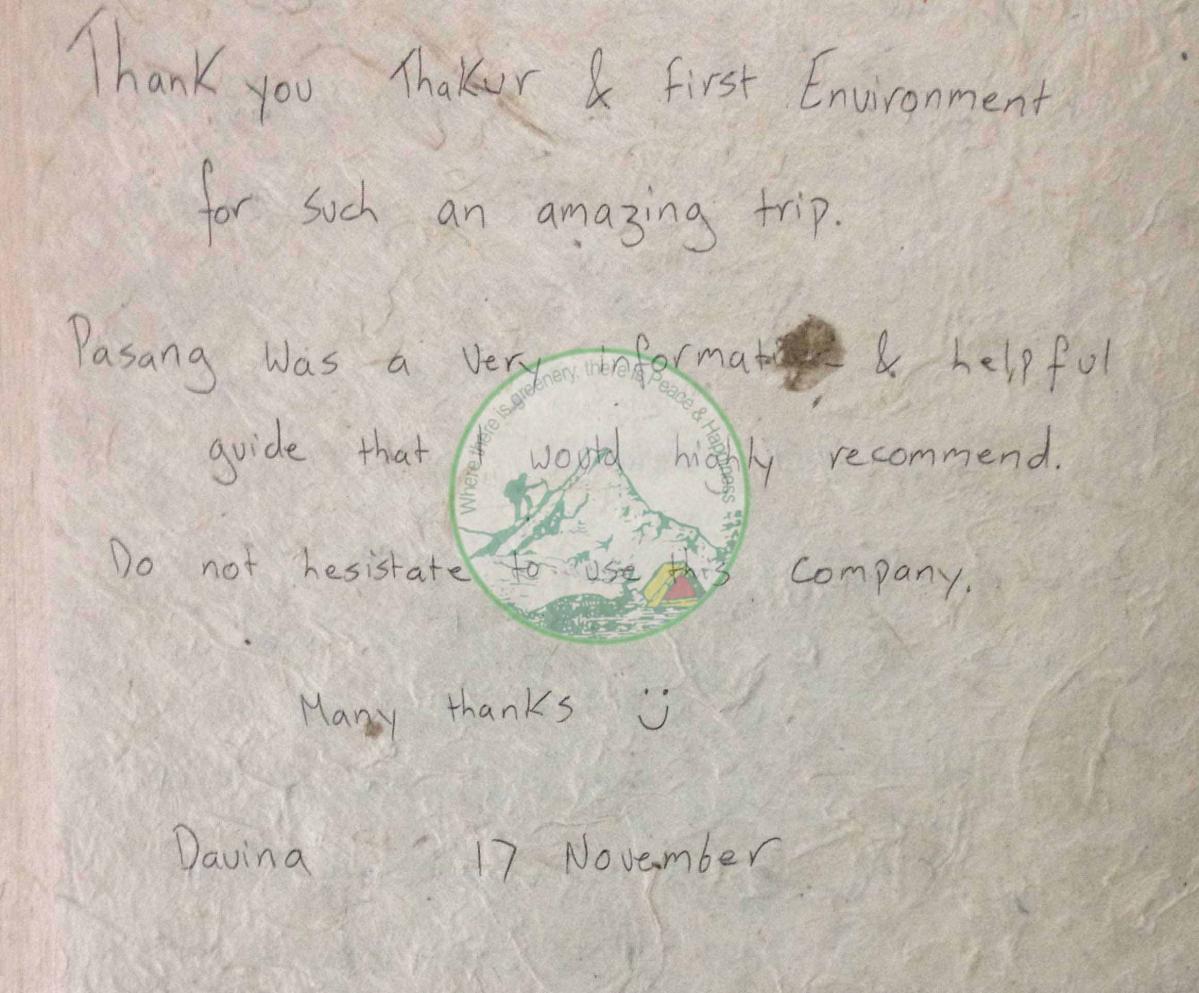 Thank you Thakur & first Environment
for such an amazing trip.
Pasang was a very & helpful
guide that I would highly recommend.
Do not hesistate to use this company.
Many thanks :)
Davina 17 November
Where there is greenery, there is Peace & Happiness